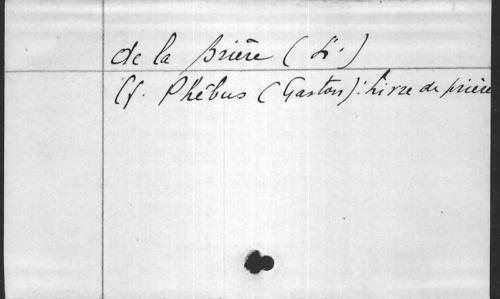 de la Brière (L.)
Cf. Phébus (Gaston): Livre de prière